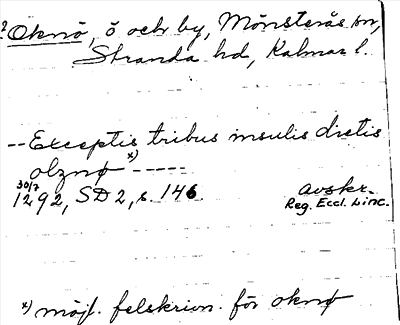 ? Oknö, ö och by, Mönsterås sn,
Stranda hd, Kalmar l.
-- Exceptis tribus insulis dictis
olznø x) -----
30/7
1292, SD 2, s. 146
avskr.
Reg. Eccl. Linc.
x) möjl. felskrivn. för oknø